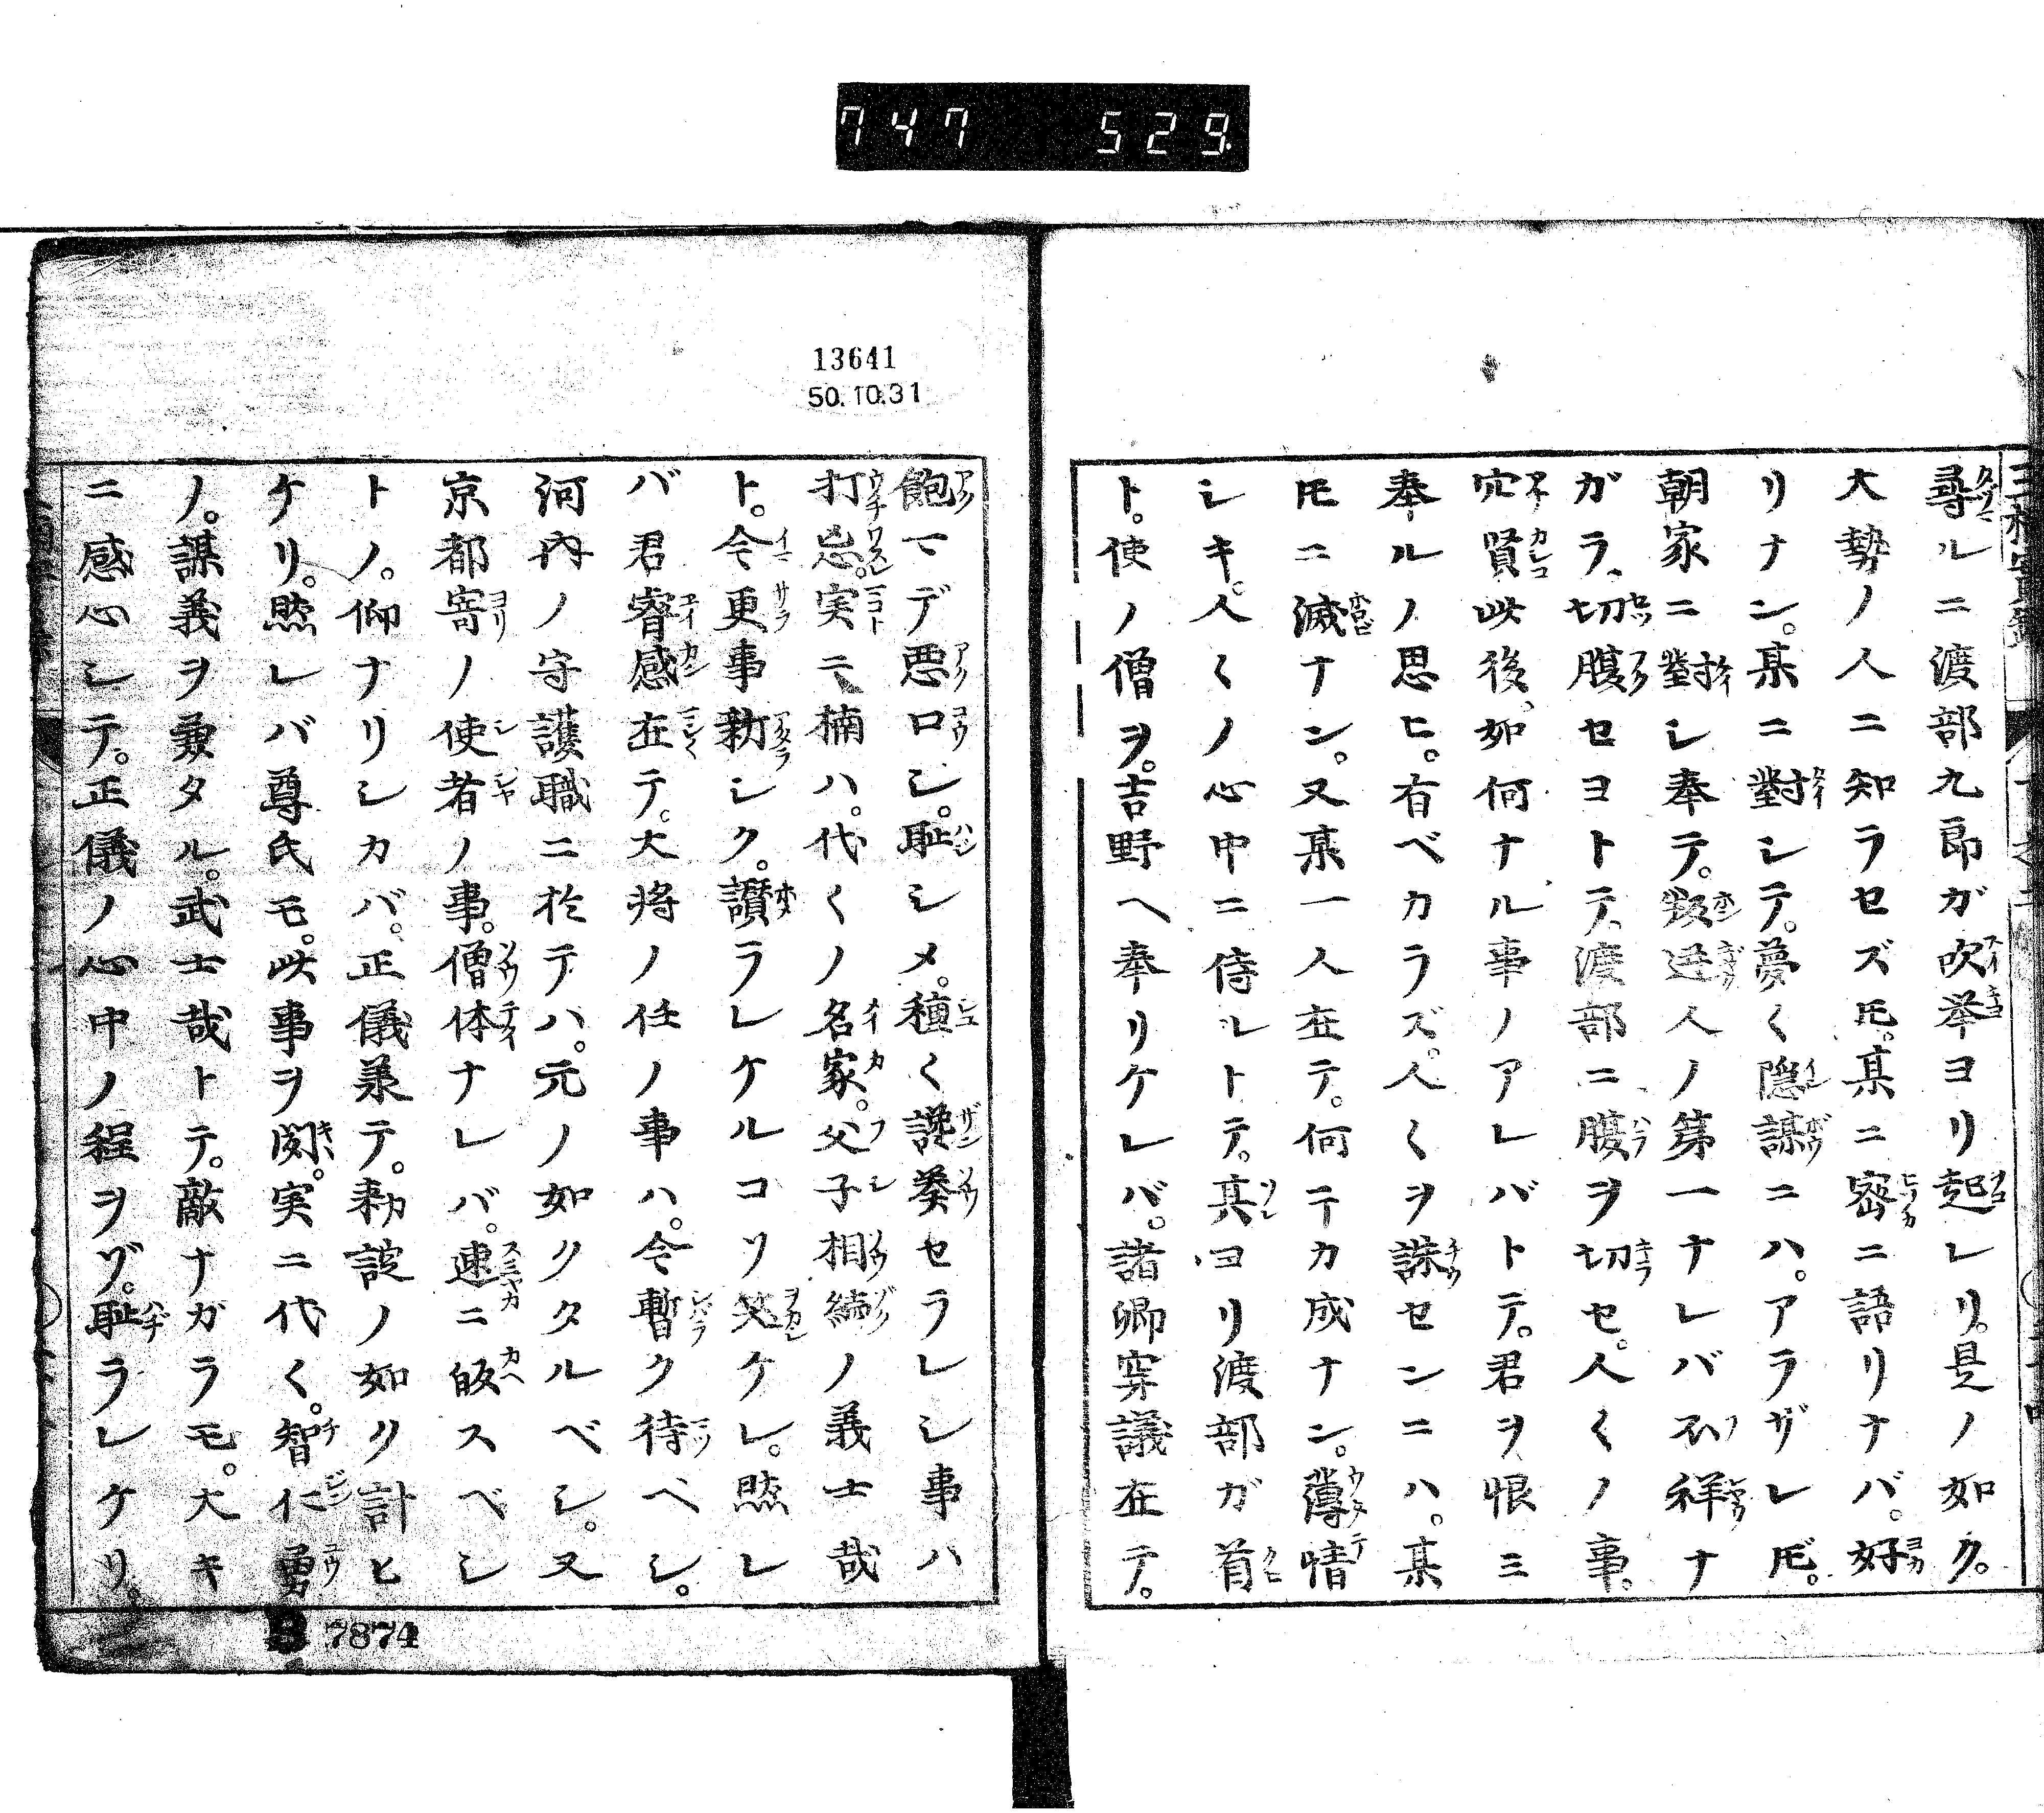 747 529
尋ルニ渡部九郎ガ吹挙ヨリ起レリ。是ノ如ク。
大勢ノ人ニ知ラセズ𪜈。某ニ密ニ語リナバ。好
リナン。某ニ對シテ。夢〱隠謀ニハ。アラザレ𪜈。
朝家ニ對シ奉テ。叛逆人ノ第一ナレバ不祥ナ
ガラ、切腹セヨトテ。渡部ニ腹ヲ切セ。人〱ノ事。
穴賢此後、如何ナル事ノアレバトテ。君ヲ恨ミ
奉ルノ思ヒ。有ベカラズ。人〱ヲ誅センニハ。某
𪜈ニ滅ナン。又某一人在テ。何ニカ成ナン。薄情
シキ。人〱ノ心中ニ侍ルトテ。其ヨリ渡部ガ首
ト。使ノ僧ヲ。吉野ヘ奉リケレバ。諸卿穽議在テ。
13641
50.10.31
飽マデ悪口シ。恥シメ。種〱讒奏セラレシ事ハ
打忘。実ニ楠ハ。代〱ノ名家。父子相続ノ義士哉
ト。今更事新シク。讃ラレケルコソ𫞂ケレ。然レ
バ君睿感在テ。大将ノ任ノ事ハ。今暫ク待ベシ。
河内ノ守護職ニ於テハ。元ノ如クタルベシ。又
京都寄ノ使者ノ事。僧体ナレバ。速ニ皈スベシ
トノ。仰ナリシカバ。正儀兼テ。勅諚ノ如ク計ヒ
ケリ。然レバ尊氏モ。此事ヲ聞。実ニ代〱。智仁勇
ノ。謀義ヲ兼タル。武士哉トテ。敵ナガラモ。大キ
ニ感心シテ。正儀ノ心中ノ程ヲゾ。恥ラレケリ。
B 7874